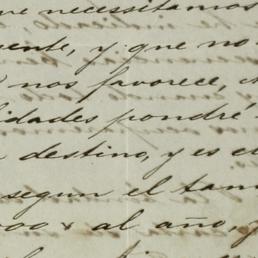 ue necesitamos
ente, y que no
nos favorece,
lidades pondré
destino, y es e
segun el tam
000 $ al año, y